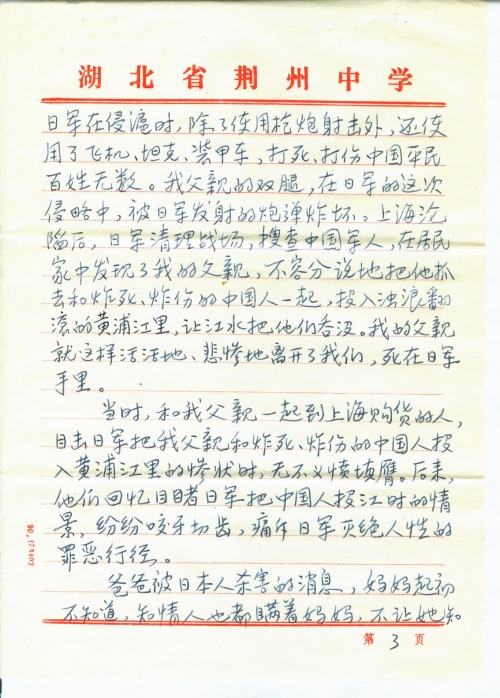 湖北省荆州中学
日军在侵沪时，除了使用枪炮射击外，还使
用了飞机、坦克、装甲车，打死、打伤中国平民
百姓无数。我父亲的双腿，在日军的这次
侵略中，被日军发射的炮弹炸坏。上海沦
陷后，日军清理战场，搜查中国军人，在居民
家中发现了我的父亲，不容分说地把他抓
去和炸死、炸伤的中国人一起，投入浊浪翻
滚的黄浦江里，让江水把他们吞没。我的父亲
就这样活活地、悲惨地离开了我们，死在日军
手里。
当时，和我父亲一起到上海购货的人，
目击日军把我父亲和炸死、炸伤的中国人投
入黄浦江里的惨状时，无不义愤填膺。后来，
他们回忆目睹日军把中国人投江时的情
景，纷纷咬牙切齿，痛斥日军灭绝人性的
罪恶行径。
爸爸被日本人杀害的消息，妈妈起初
不知道，知情人也都瞒着妈妈，不让她知
第 3 页